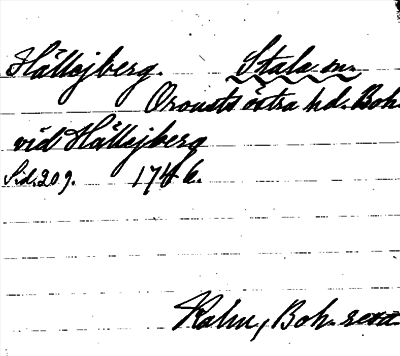 Hällejberg. Stala sn.
Orousts östra hd. Boh.
vid Hällejberg
Sid. 209. 1746.
Kalm, Boh. resa